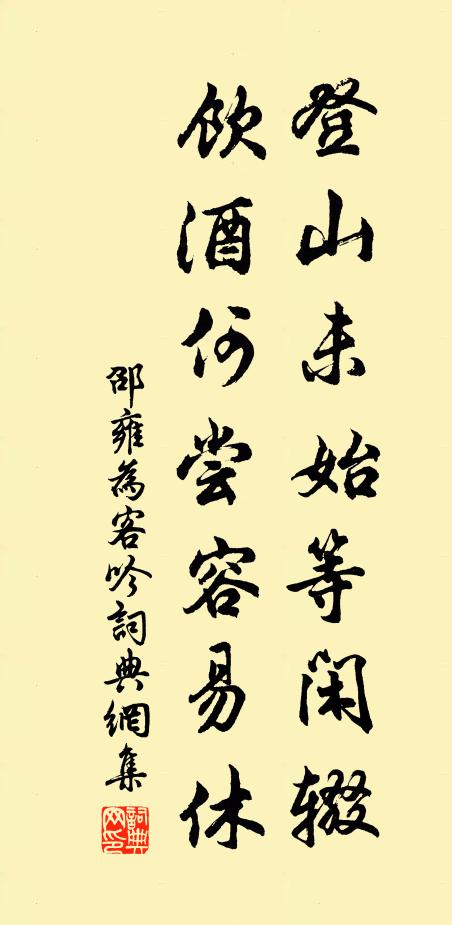 登山未始等闲辍
饮酒何尝容易休
邵雍為客吟詞典網集
詞典
网印